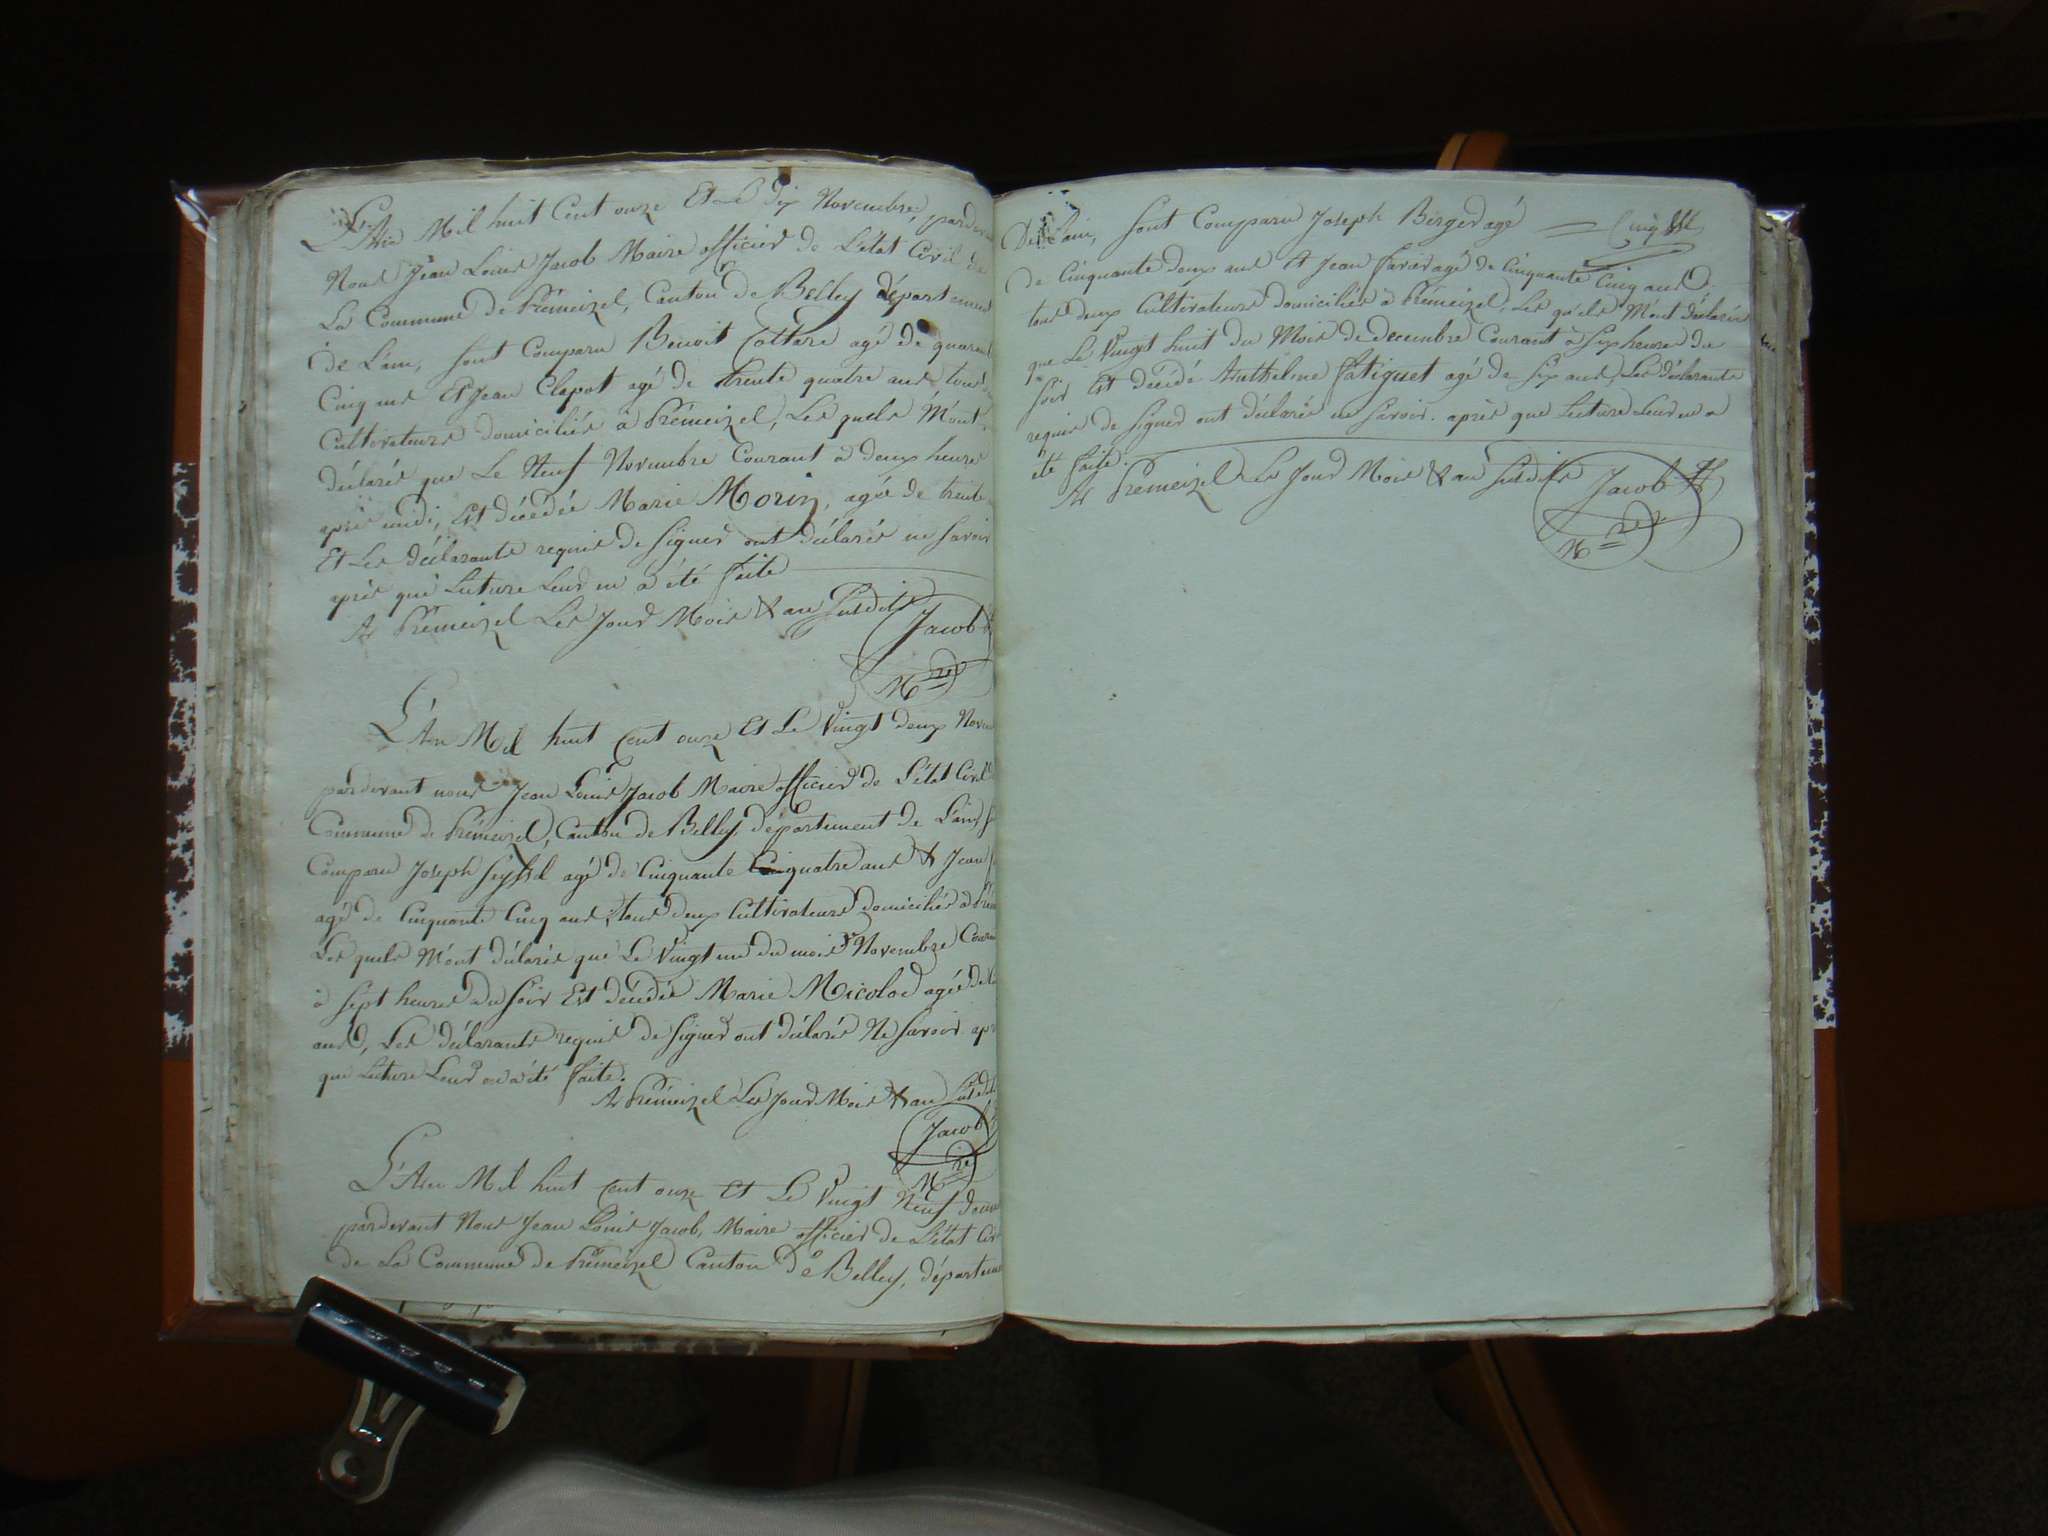 L'An Mil huit Cent onze Et Le dix Novembre, pardev
Nous Jean Louis Jacob Maire officier de L'état Civil de
La Commune de Prémeizel, Canton de Belley département
de L'ain, sont Comparu Benoit Cottare agé de quarant
Cinq ans Et Jean Clapot agé de trente quatre ans tous
Cultivateurs domiciliés à Prémeizel, Les quels M'ont
déclarés que Le Neuf Novembre Courant à deux heures
après midi, Est décédée Marie Morin, agée de trente
Et Les déclarants requis de signer ont déclarés ne savoir
après que Lecture Leur en a été faite
A Prémeizel Les Jour Mois & an susdits
Jacob
Mre
L'An Mil huit Cent onze Et Le Vingt deux Nove
pardevant nous Jean Louis Jacob Maire officier de L'état Civil
Commune de Prémeizel, Canton de Belley département de L'ain, s
Comparu Joseph Seyssel agé de Cinquante quatre ans & Jean
agé de Cinquante Cinq ans, tous deux Cultivateurs domiciliés à Prém
Les quels M'ont déclarés que Le Vingt un du mois Novembre Coura
à sept heures du soir Est décédée Marie Micolod agée de
ans, Les déclarants requis de signer ont déclarés Ne savoir apr
que Lecture Leur en a été faite.
A Prémeizel Les Jour Mois & an susdit
Jacob
Mre
L'An Mil huit Cent onze Et Le Vingt Neuf
pardevant Nous Jean Louis Jacob, Maire officier de L'état Civ
de La Commune de Prémeizel Canton de Belley, départem
De L'ain, sont Comparu Joseph Berger agé
de Cinquante deux ans & Jean favre agé de Cinquante Cinq ans
tous deux Cultivateurs domiciliés à Prémeizel, Les quels M'ont déclarés
que Le Vingt huit du Mois de decembre Courant à six heures du
soir Est décédé Anthelme fatiguet agé de six ans, Les déclarants
requis de signer ont déclarés ne savoir. après que Lecture Leur en a
été faite.
A Prémeizel Les Jour Mois & an susdits
Jacob
Mre